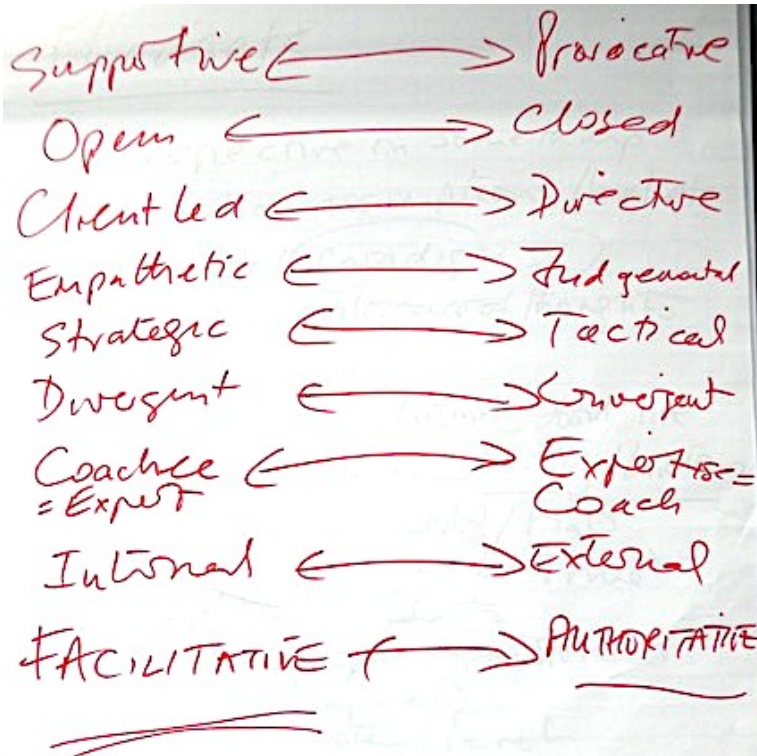 Supportive ↔ Provocative
Open ↔ Closed
Client Led ↔ Directive
Empathetic ↔ Judgemental
Strategic ↔ Tactical
Divergent ↔ Convergent
Coachee ↔ Expertise =
= Expert Coach
Internal ↔ External
FACILITATIVE ↔ AUTHORITATIVE